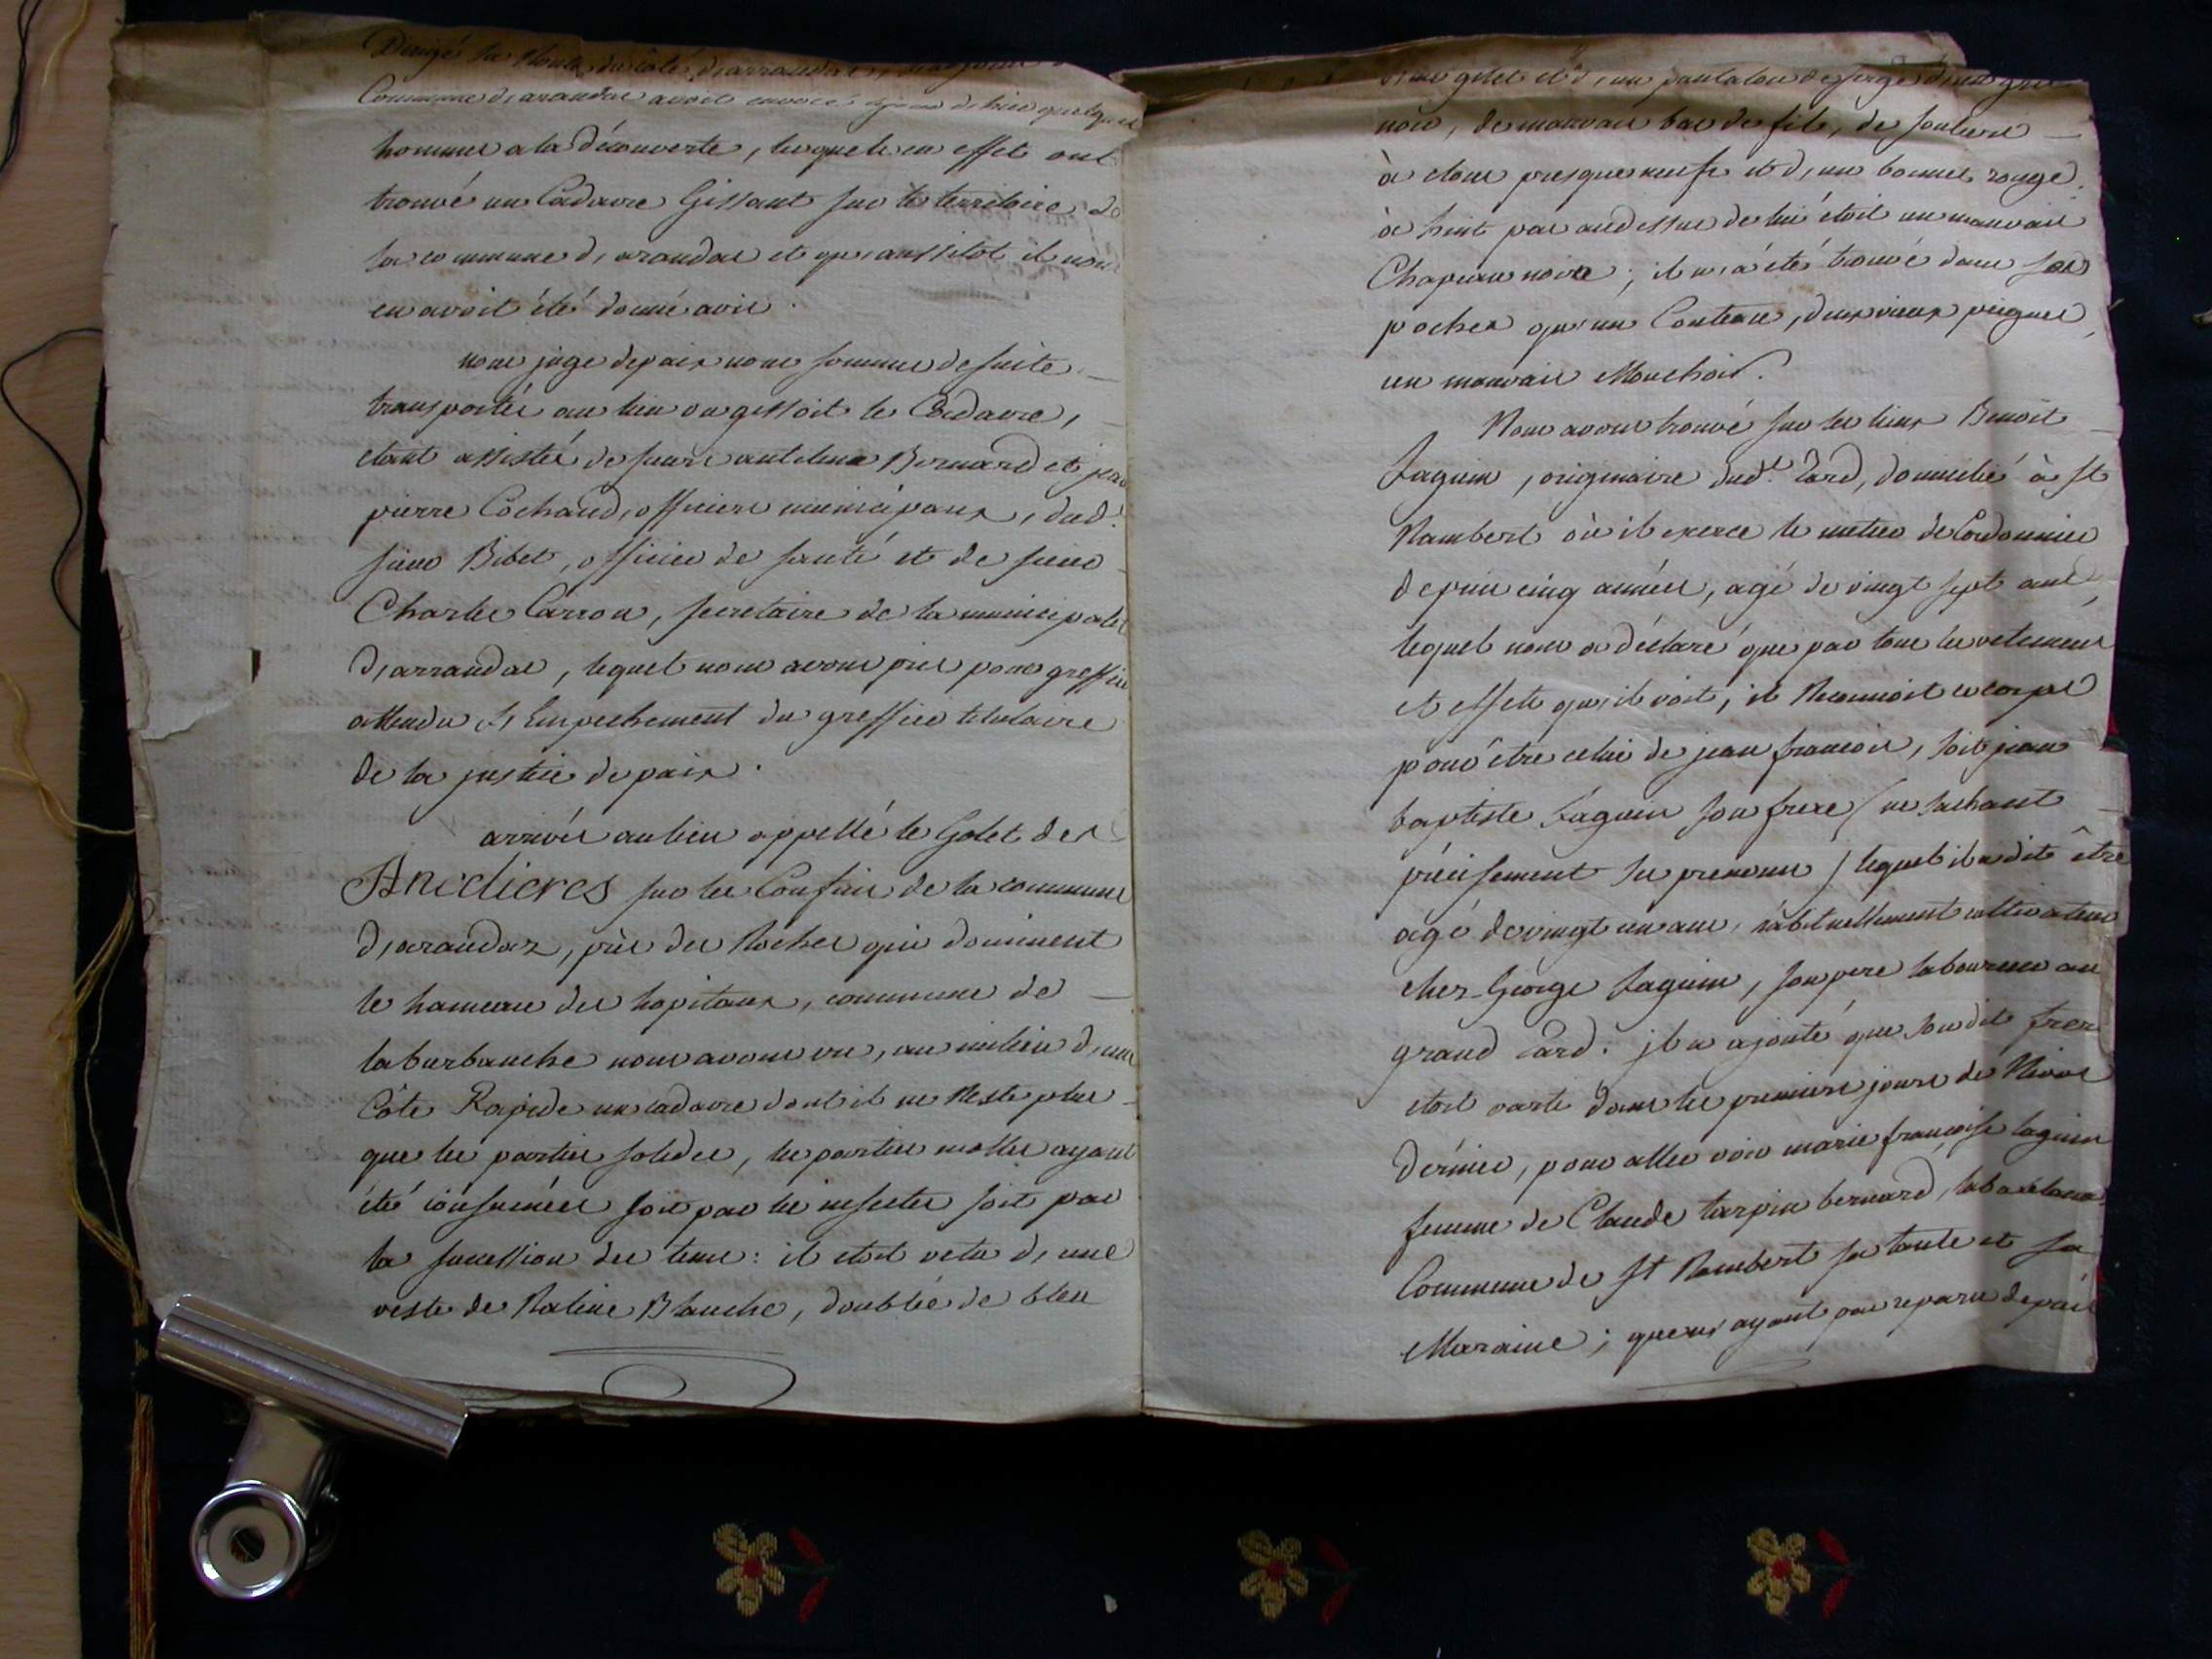 Dirigé sa Route du côté d,arrandas,
Commune d,arandas avoit envoié de hier quelques
hommes a la découverte, lesquels en effet ont
trouvé un Cadavre Gissant sur le territoire de
la commune d,arandas et qu,aussitot il nous
en avoit été donné avis.
nous juge de paix nous sommes de suite
transportés au lieu ou gissoit le Cadavre,
etant assistés de sieurs antelme Bernard et jean
pierre Cochaud, officiers municipaux, dud.
sieur Bibet, officier de santé et de sieur
Charles Carron, secretaire de la municipalité
d,arrandas, lequel nous avons pris pour greffier
attendu l,Empechement du greffier titulaire
de la justice de paix.
arrivés au lieu appellé le Golet des
Anedieres sur les Confins de la commune
d,arandaz, près des Rochers qui dominent
le hameau des hopitaux, commune de
laburbanche nous avons vu, au milieu d,une
Côte Rapide un cadavre dont il ne Reste plus
que les parties solides, les parties molles ayant
été consumées soit par les insectes soit par
la succession des tems: il etoit vetu d,une
veste de Ratine Blanche, doublée de bleu
d,un gilet id. d,un pantalon de serge d,un gris
noir, de mauvais bas de fil, de souliers
à clous presque neufs et d,un bonnet rouge.
à huit pas au dessus de lui étoit un mauvais
Chapeau noire; il n,a été trouvé dans ses
poches qu,un Couteau, deux vieux peignes,
un mauvais Mouchoir.
Nous avons trouvé sur les lieux Benoit
Laguin, originaire dud.t Lard, domicilié à St
Rambert où il exerce le metier de Cordonnier
depuis cinq années, agé de vingt sept ans,
lequel nous a déclaré que par tous les vetemens
et effets qu,il voit, il Reconnoit ce corps
pour être celui de jean francois, soit jean
baptiste Laguin son frere / ne sachant
précisement ses prenoms / lequel il a dit être
agé de vingt un ans, habituellement cultivateur
chez George Laguin, son pere laboureur au
grand Lard. il a ajouté que sondit frere
etoit parti dans les premiers jours de Nivos
dernier, pour aller voir marie françoise laguin
femme de Claude tarpin bernard,
Commune de St Rambert sa tante et sa
Maraine; que n,ayant pas reparu depuis